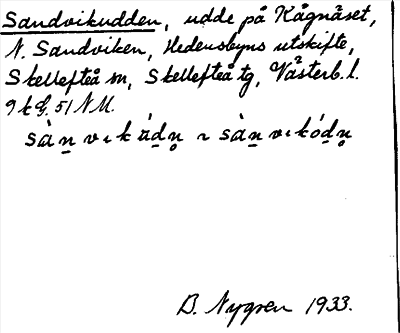 Sandvikudden, udde på Kågnäset,
N. Sandviken, Hedensbyns utskifte,
Skellefteå m, Skellefteå tg, Västerb. l.
9 k G. 51 N M.
B. Nygren 1933.